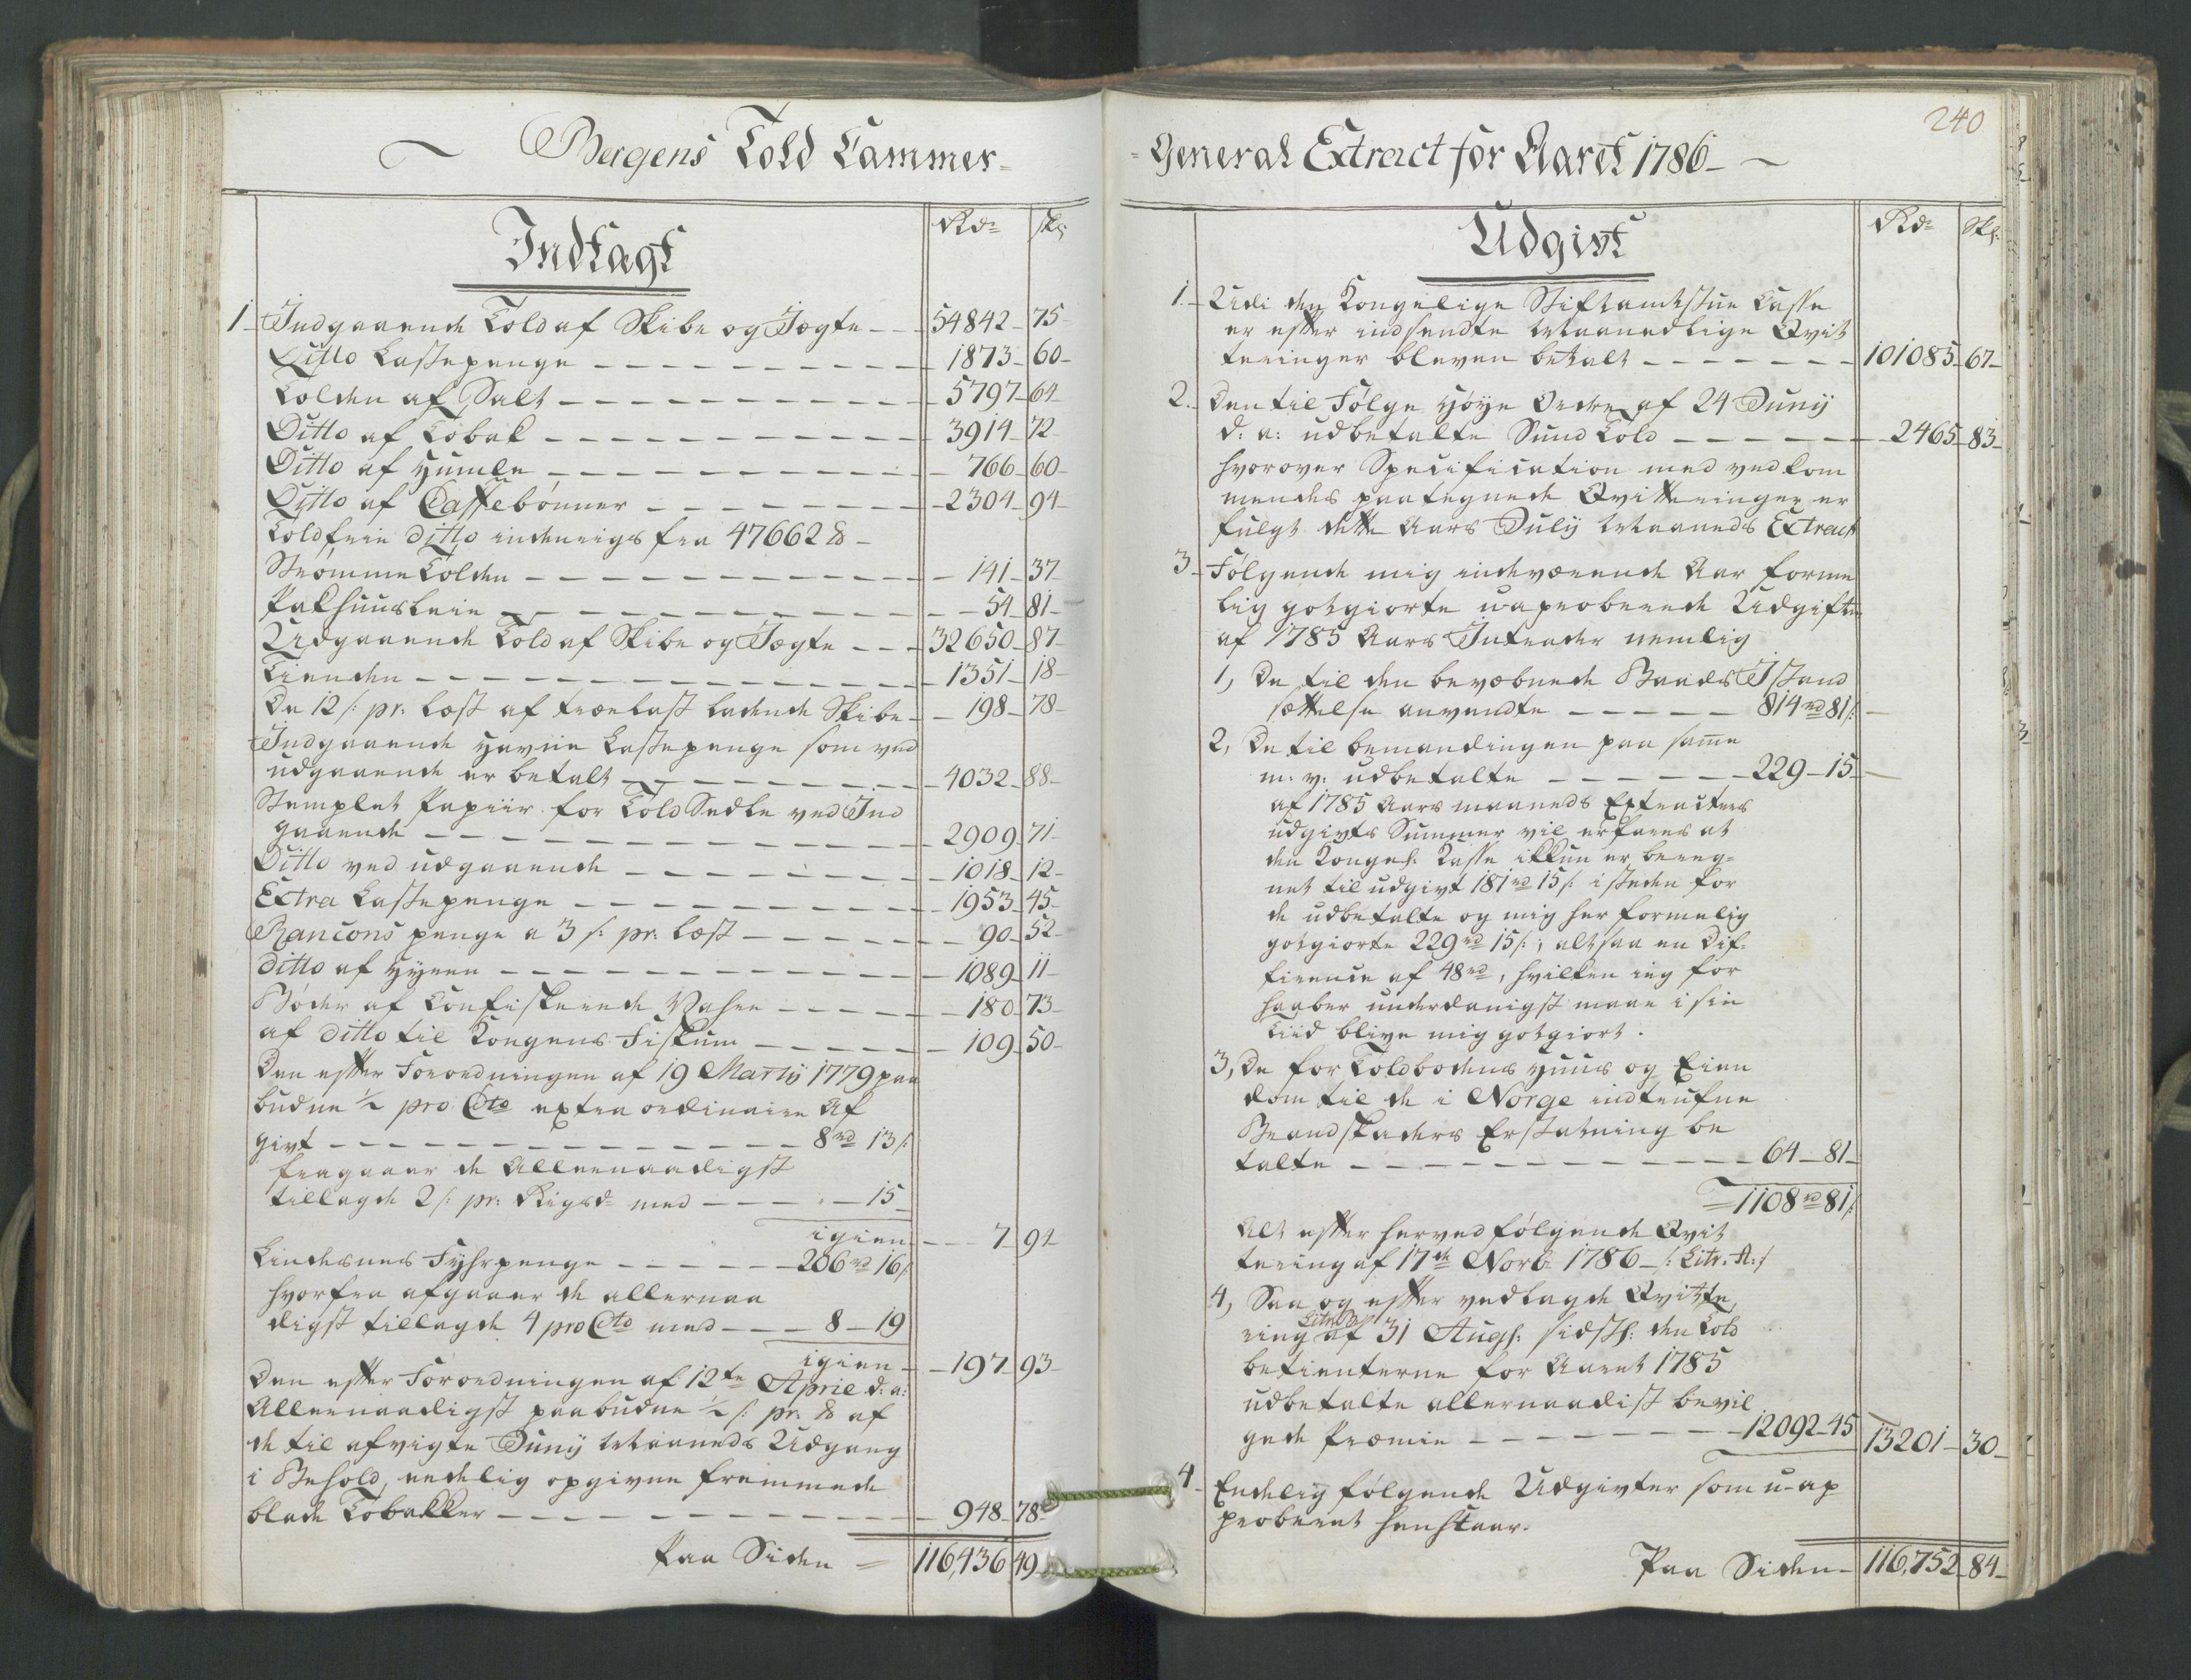 240
Bergens Told Cammer
General Extract for Aaret 1786
Indtægt
Rdr
skl
1 Indgaaende Told af Skibe og Jægte 54842 75
Ditto Lastepenge 1873 60
Tolden af Salt 5797 64
Ditto af Tobak 3914 72
Ditto af Humle 766 60
Ditto af Caffebønner 2304 94
Toldfrie ditto indenrigs fra 47662 ℔
StrømmeTolden 141 37
Pakhuusleie 54 81
Udgaaende Told af Skibe og Jægte 32650 87
Tienden 1351 18
De 12 s: pr: Læst af trælast ladende Skibe 198 78
Indgaaende Havne Lastepenge som ved
udgaaende er betalt 4032 88
Stemplet Papiir for ToldSedle ved Ind
gaaende 2909 71
Ditto ved udgaaende 1018 12
Extra Lastepenge 1953 45
Rancons penge a 3 s: pr: Læst 90 52
ditto af Hyren 1089 11
Bøder af Confiskerede Vahre 180 73
af ditto til Kongens Fiskum 109 50
Den efter Forordningen af 19 Martij 1779 paa
budne ½ pro Cto extra ordinaire Af
givt 8 rd 13 s:
fragaaer de Allernaadigst
tillagde 2 s: pr: Rigsdr med 15
igien 7 94
Lindesnes Fyhrpenge 206 rd 16 s:
hvorfra afgaaer de allernaa
digst tillagde 4 pro Cto med 8 19
igien 197 93
Den efter Forordningen af 12te April d: a:
Allernaadigst paabudne ½ s: pr: ℔ af
de til afvigte Junij Maaneds Udgang
i Behold, endelig opgivne fremmede
blade Tobakker 948 78
Paa Siden 116,436 49
Udgivt
Rdr
Skl:
1. Udi den Kongelige Stiftamtstue Casse
er efter indsendte Maanedlige Qvit
teringer bleven betalt 101085 67
2. Den til Følge Høye Ordre af 24 Junij
d: a: udbetalte Sund Told 2465 83
hvorover Specification med vedkom
mendes paategnede Qvitteringer er
fulgt dette Aars Julij Maaneds Extract
3 Følgende mig indeværende Aar forme
lig godgiorte uaproberede Udgifter
af 1785 Aars Intrader nemlig
1, De til den bevæbnede Baads Istand
sættelse anvendte 814 rd 81 s:
2, De til bemandingen paa samme
m: v: udbetalte 229 15
af 1785 Aars maaneds Extracters
udgivts Summer vil erfares at
den Kongel: Kasse ikkun er bereg=
net til udgivt 181 rd 15 s: isteden for
de udbetalte og mig her formelig
gotgiorte 229 rd 15 s:, altsaa en Dif=
ference af 48 rd, hvilken ieg for
haaber underdanigst maae i sin
Tiid blive mig gotgiort.
3, De for Toldbodens Huus og Eien
dom til de i Norge indtrufne
Brandskaders Erstatning be
talte 64 81
1108 rd 81 s:
Alt efter herved følgende Qvit
tering af 17de Novb: 1786 /: Litr: A: /
4, Saa og efter vedlagde Qvitte
Litr: B
ring af 31 Aug: sidstl: den Told
betienterne for Aaret 1785
udbetalte allernaadist bevil
gede Præmie 12092 45 13201 30
4 Endelig følgende Udgivter som u-ap
proberet henstaar.
Paa Siden 116,752 84